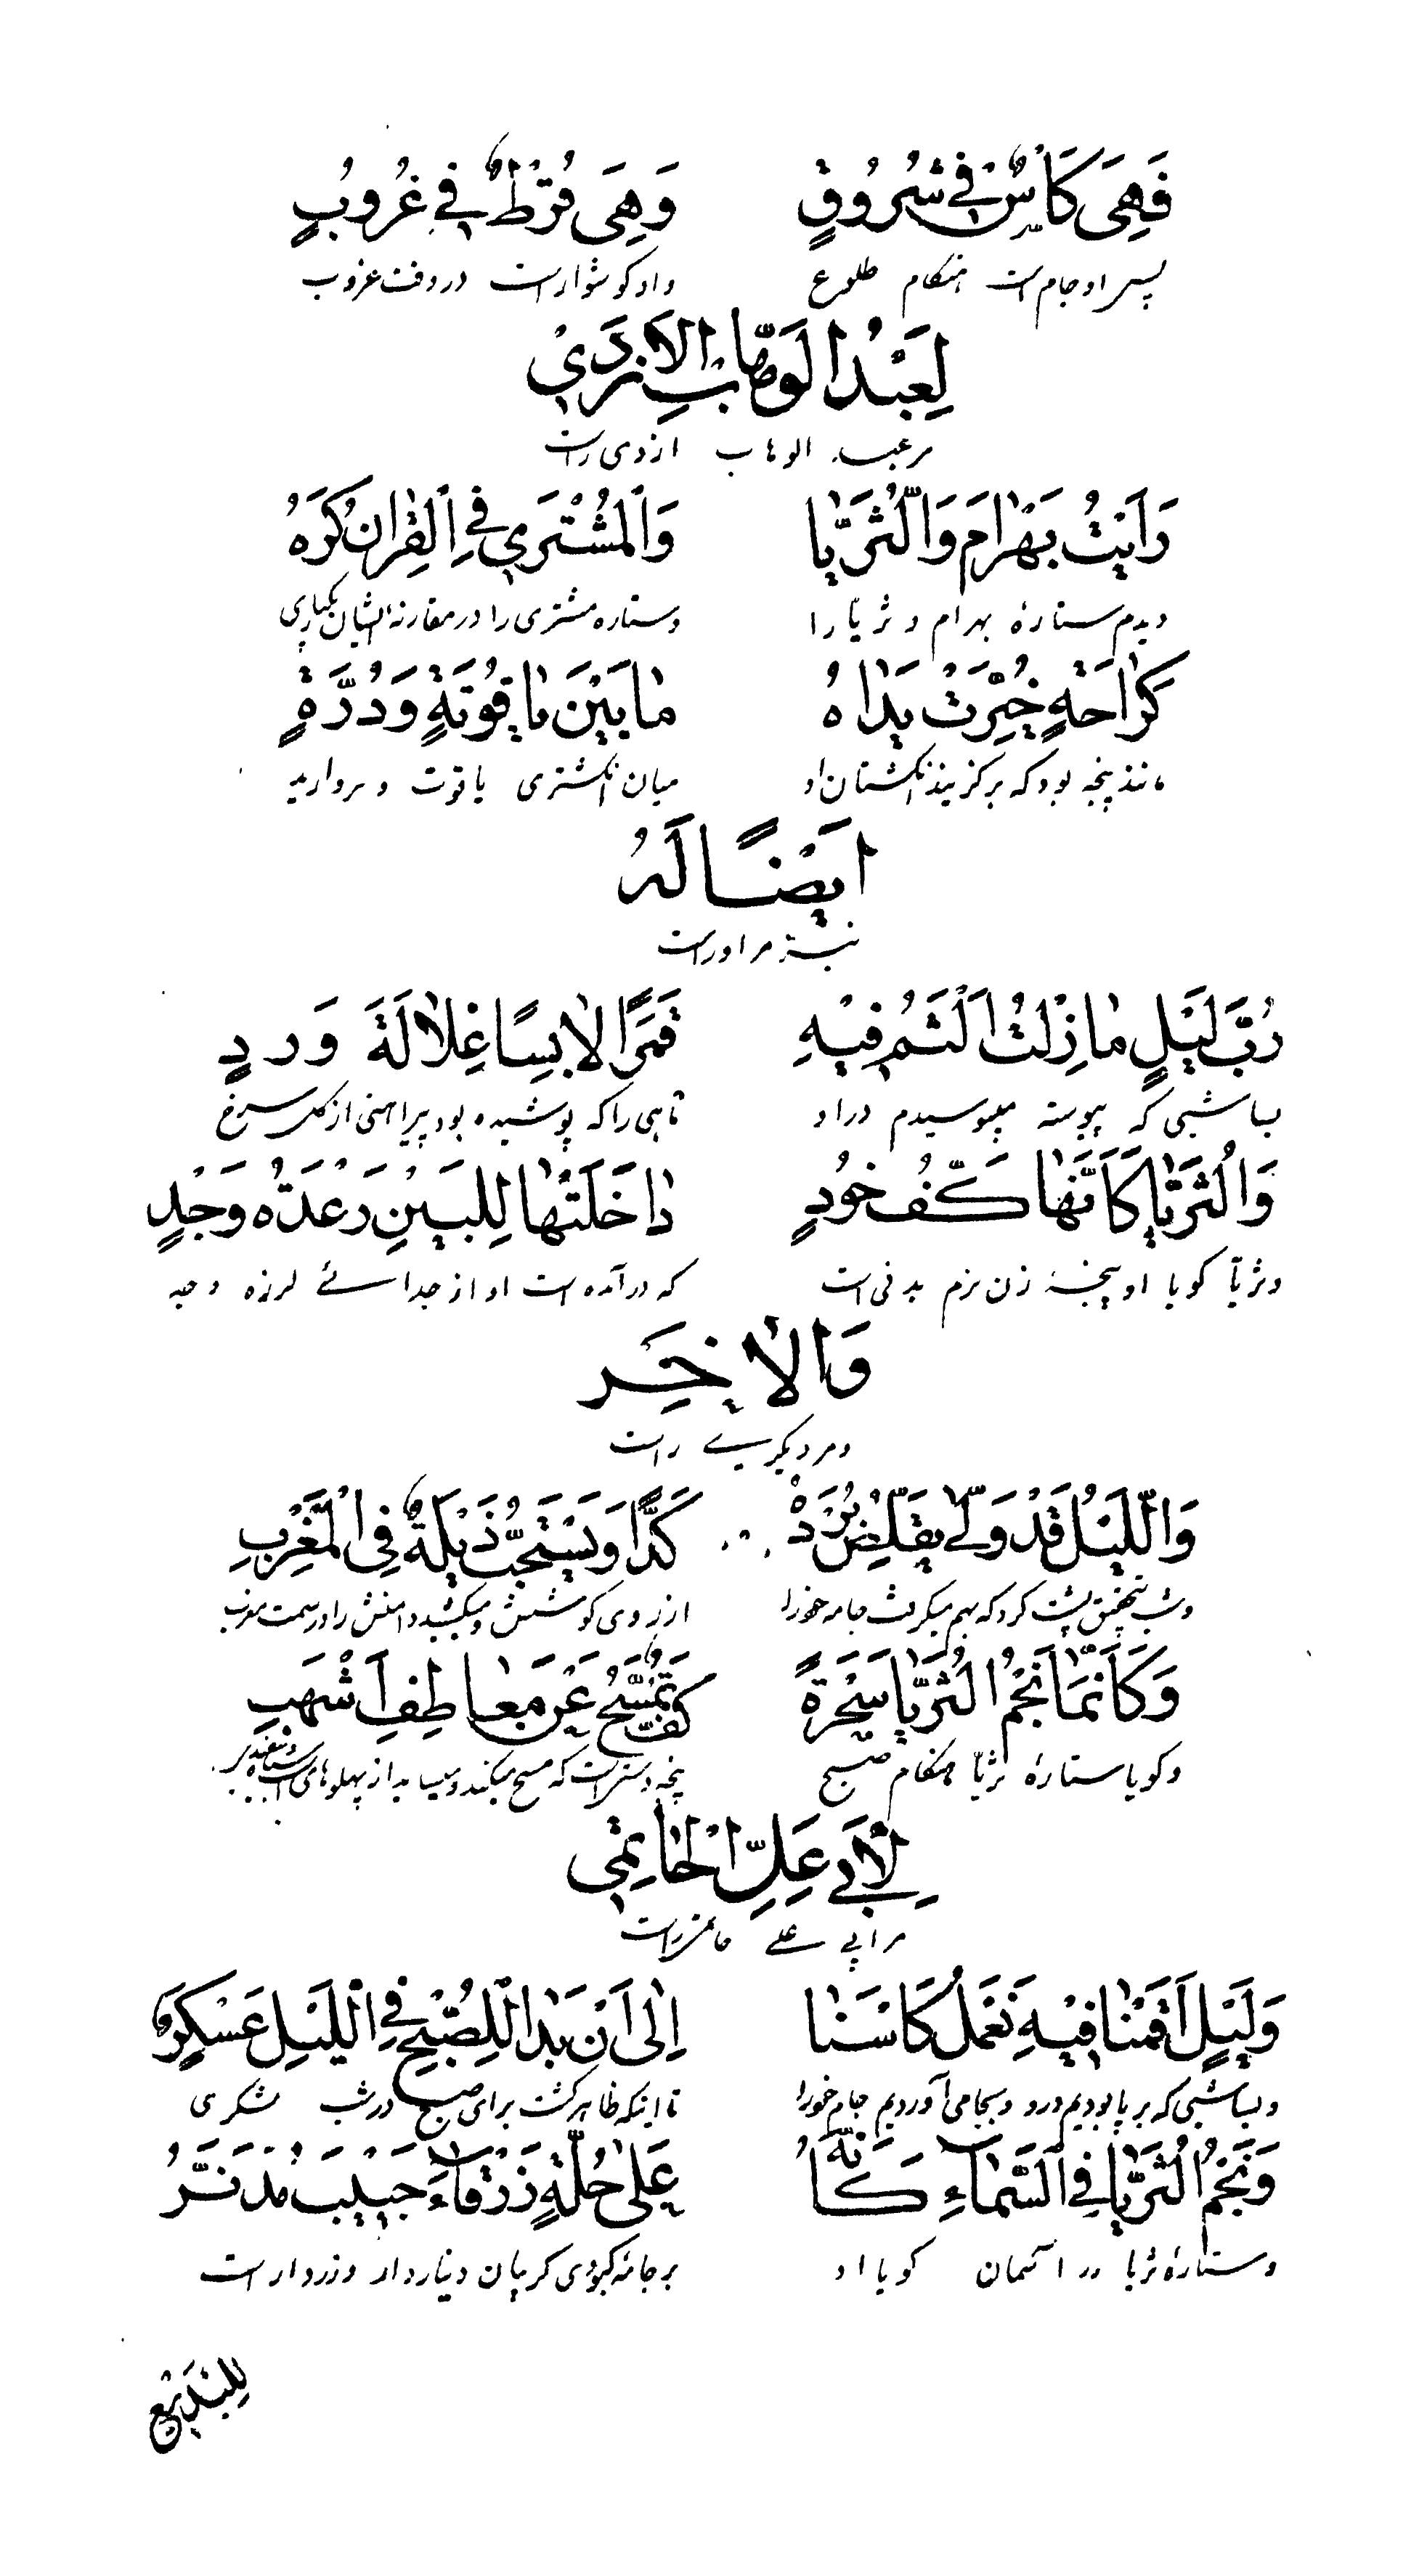 فَهِيَ كَاْسٌ فِي شُرُوقٍ وَهِيَ قُرْطٌ فِي غُرُوبٍ
پس او جام است هنگام طلوع و او کوشوار است در وقت غروب
لِعَبْدِ الوَهَّابِ الاَزدِيْ
مر عبد الوهاب ازدی راست
رَاَيْتُ بَهْرٰامَ وَالثُّرَيّٰا وَالْمُشْتَرِي فِي الْقِرٰانِ كُرَهْ
دیدم ستارهٔ بهرام و ثریّا را و ستاره مشتری را در مقارنهٔ ایشان
كَرٰاحَةٍ خُيِّرَتْ يَدٰاهُ مٰا بَيْنَ يٰاقُوتَةٍ وَدُرَّةٍ
مانند پنجه بود که برکزیند انکشتان او میان انکشتری یاقوت و مروارید
اَيْضًا لَهُ
نیز مر اوراست
رُبَّ لَيْلٍ مٰا زِلْتُ اَلْثَمُ فِيْهِ قَمَرًا لاٰبِسًا غِلاٰلَةَ وَردٍ
بسا شبی که پیوسته میبوسیدم در او ماهی را که پوشیده بود پیراهنی از کل سرخ
وَالثُّرَيّٰا كَاَنَّهٰا كَفُّ خودٍ دٰاخَلَتْهٰا لِلْبَيْنِ رَعْدَةُ وَجْدٍ
و ثریّا کویا او پنجهٔ زن نرم بدنی است که در آمده است او از جدائے لرزه وجد
وَالاٰخِر
و مر دیکرے راست
وَاللَّيْلُ قَدْ وَلّٰى يُقَلِّصُ بُرْدَهْ كَدًّا وَيَسْتَحِبُّ ذَيْلَهُ فِي الْمَغْرِبِ
و شب بتحقیق پشت کرد که بهم میکرفت جامه خود را از روی کوشش و میکشید دامنش را در سمت مغرب
وَكَاَنَّمٰا نَجْمُ الثُّرَيّٰا سُحْرَةً كَفٌّ تُمَسَّحُ عَنْ مَعٰاطِفِ اَشْهَبِ
و کویا ستارهٔ ثریّا هنکام صبح پنجه و دست است که مسح میکند از پهلوهای
لِاَبِي عَلِيِّ الْحٰاتِمِي
مر ابی علے حاتمی راست
وَلَيْلٍ اَقَمْنٰا فِيْهِ نَعْمَلُ كَاْسَنٰا اِلٰى اَنْ بَدٰا لِلصُّبْحِ فِي اللَّيْلِ عَسْكَرٌ
و بسا شبی که بر پا بودیم درو و بجا می آوردیم جام خود را تا اینکه ظاهر کشت برای صبح در شب لشکری
وَنَجْمُ الثُّرَيّٰا فِي السَّمٰاءِ كَاَنَّهُ عَلٰى حُلَّةٍ زَرْقٰاءَ جَيْبٌ مُدَنَّرُ
و ستارهٔ ثریّا در آسمان کویا او بر جامهٔ کبودی کریبان دینار دار و زردار است
لِلْبَدِيْعِ